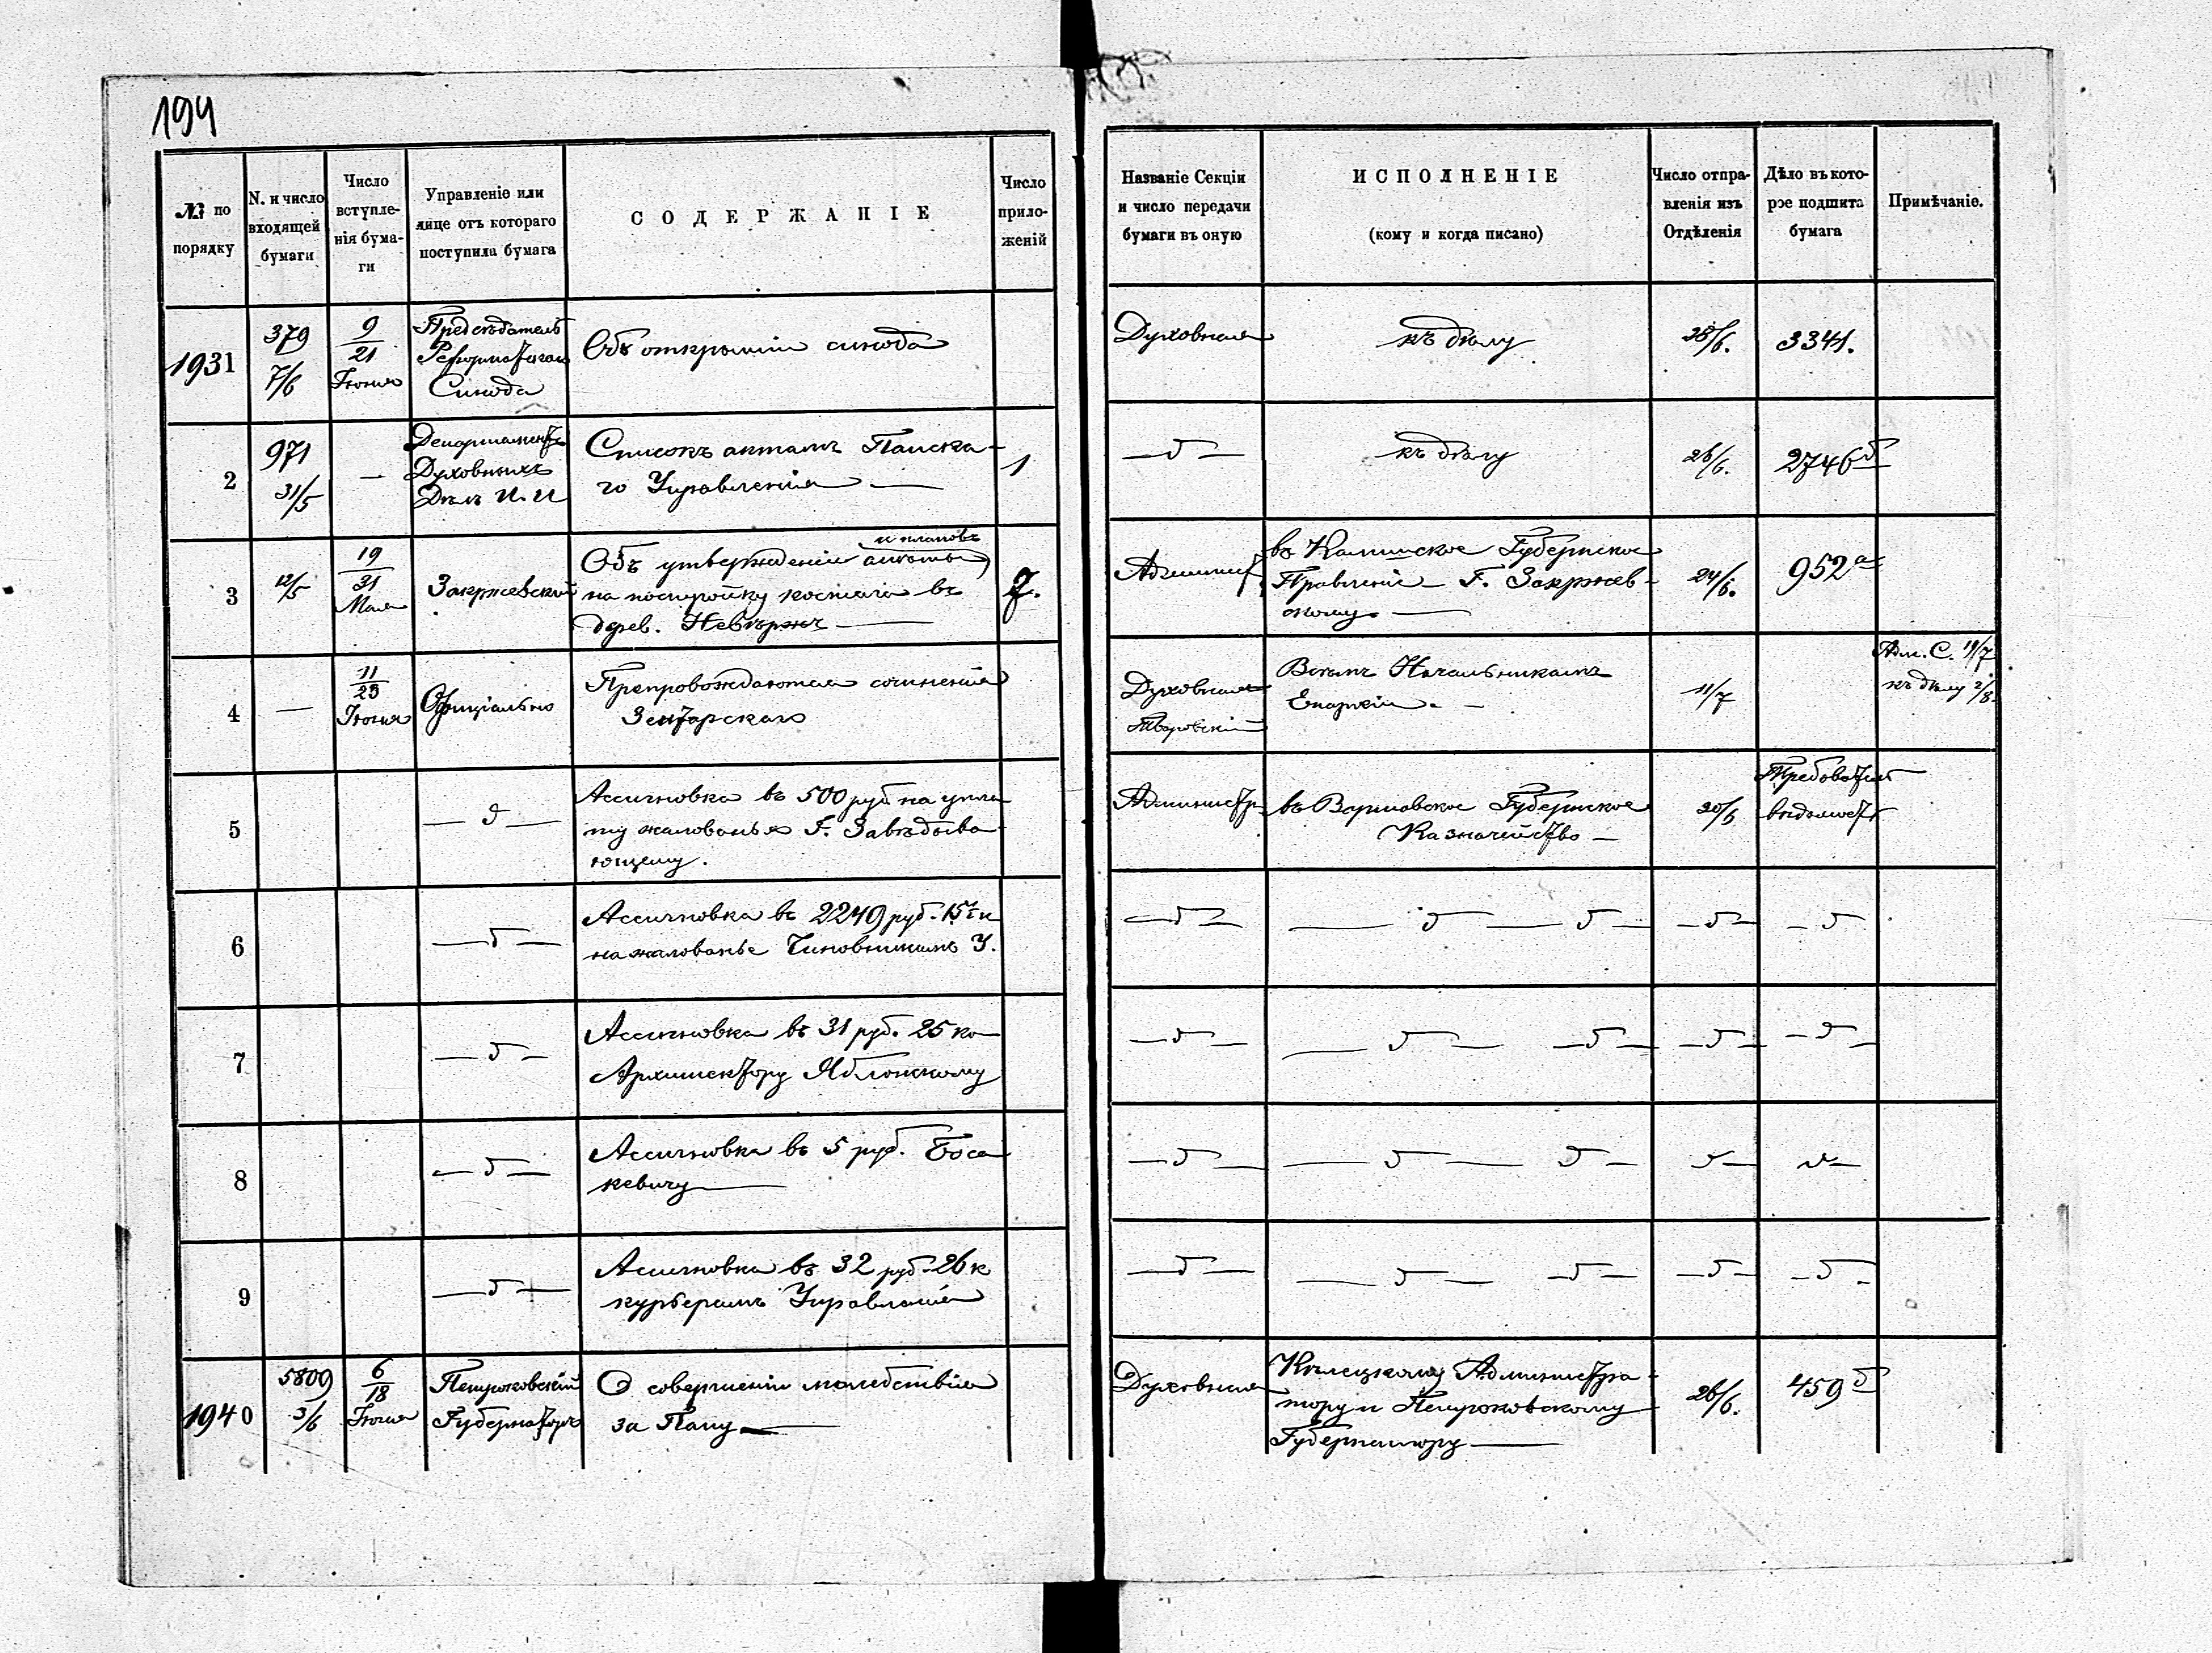 194
№ по порядку
N. и число входящей бумаги
Число вступленія бумаги
Управленіе или лице отъ котораго поступила бумага
СОДЕРЖАНІЕ
Число приложеній
Названіе Секціи и число передачи бумаги въ оную
ИСПОЛНЕНІЕ
(кому и когда писано)
Число отправленія изъ Отдѣленія
Дѣло въ которое подшита бумага
Примѣчаніе.
1931
379
7/6
9/21 Іюня
Предсѣдатель
Реформатскаго
Синода
Объ открытіи синода
Духовная
къ дѣлу
3341.
2
971
31/5
—
Департаментъ
Духовныхъ
Дѣлъ И. И
Списокъ актамъ Папска-
го Управленія —
1
— д —
къ дѣлу
26/6.
2746 б
3
12/5
19/31 Мая
Закржевскій
и плановъ
Объ утвержденіи
на постройку костела въ
дерев.
7.
Админист
въ Калишское Губернское
Правленіе — Г. Закржев-
скому —
24/6.
952 а
4
—
11/23 Іюня
Офиціально
Препровождаются сочиненія
Духовная
Всѣмъ Начальникамъ
Епархіи. —
11/7
Адм. С. 19/7
къ дѣлу 2/8.
5
— д —
Ассигновка въ 500 руб на упла-
ту жалованья Г. Завѣдыва-
ющему.
Администр
въ Варшавское Губернское
Казначейство —
20/6
6
— д —
Ассигновка въ 2249 руб. 15 к
на жалованье Чиновникамъ У.
— д —
— д — д —
— д —
— д
7
— д —
Ассигновка въ 31 руб. 25 ко
Архитектору Яблонскому
— д —
— д — — д —
— д —
— д —
8
— д —
Ассигновка въ 5 руб.
кевичу —
— д —
— д — д —
д —
д —
9
— д —
Ассигновка въ 32 руб. 26 к
курьерамъ Управленія
— д —
— д — — д —
— д —
— д —
1940
5809
3/6
6/18 Іюня
Петроковскій
Губернаторъ
О совершеніи молебствія
за Папу —
Духовная
Кѣлецкому Администра-
тору и Петроковскому
Губернатору —
26/6.
459 б